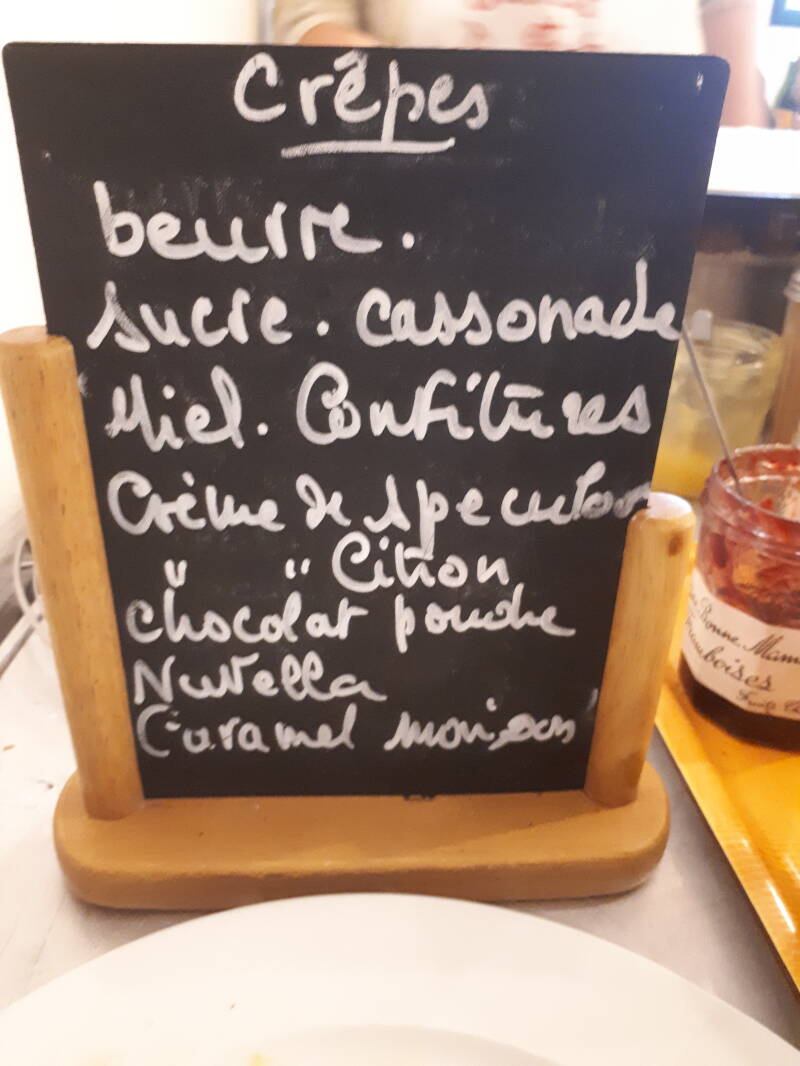 Crêpes
beurre.
sucre. cassonade
Miel. Confitures
Crème de speculoos
" " Citron
chocolat poudre
Nutella
Caramel maison
Bonne Mam
Framboises